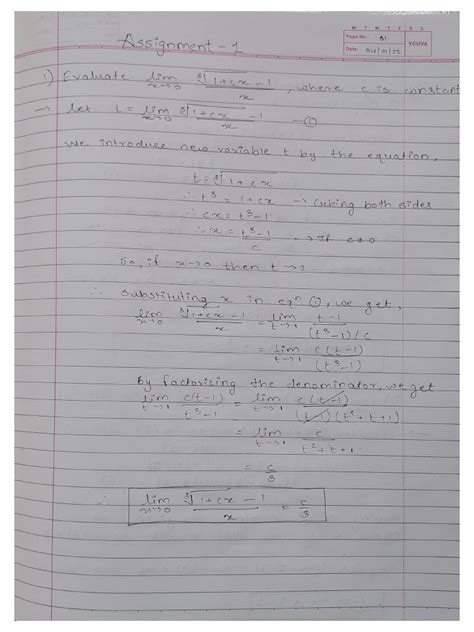 M T W T F S S
Page No.: 01
YOUVA
Assignment - 1
1) Evaluate lim x→0 (∛(1+cx) - 1)/x, where c is constant
→ let L = lim x→0 (∛(1+cx) - 1)/x —①
We introduce new variable t by the equation,
t = ∛(1+cx)
∴ t³ = 1+cx → cubing both sides
∴ cx = t³-1
∴ x = (t³-1)/c → if c≠0
So, if x→0 then t→1.
∴ Substituting x in eqⁿ ①, we get,
lim x→0 (∛(1+cx) - 1)/x = lim t→1 (t-1)/((t³-1)/c)
= lim t→1 c(t-1)/(t³-1)
By factorizing the denominator, we get
lim t→1 c(t-1)/(t³-1) = lim t→1 c(t-1)/((t-1)(t²+t+1))
= lim t→1 c/(t²+t+1)
= c/3
∴ lim x→0 (∛(1+cx) - 1)/x = c/3